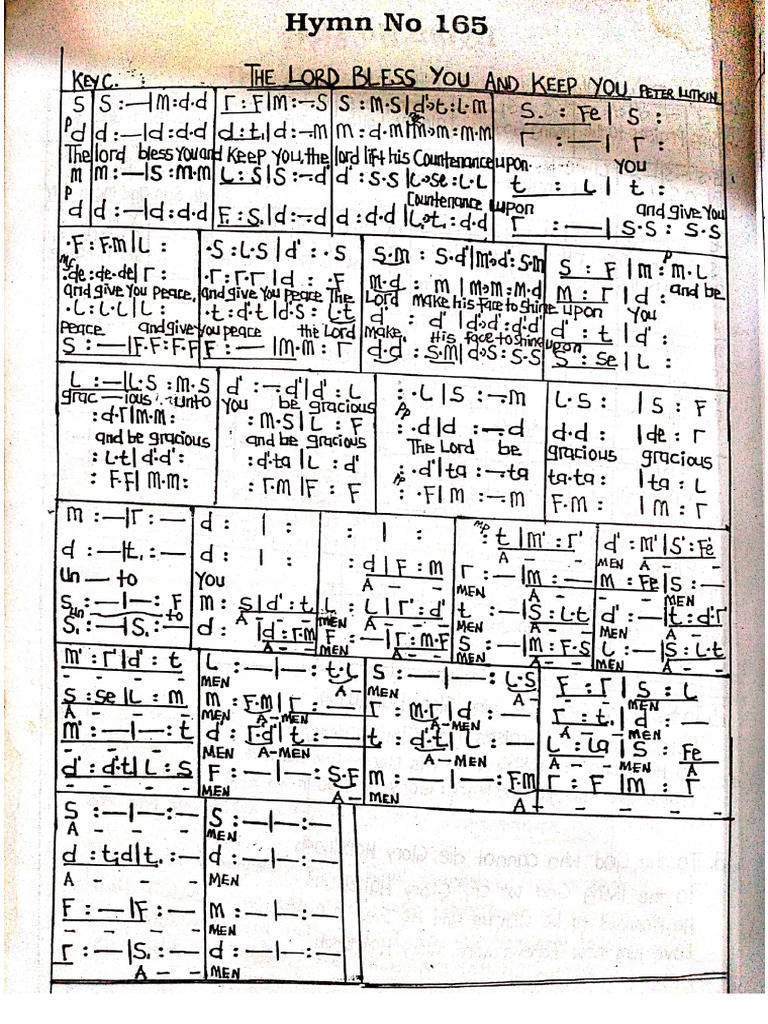 Hymn No 165
KEY C. THE LORD BLESS YOU AND KEEP YOU PETER LUTKIN
S | S : — | m : d . d | r : F | m : — . S | S : m . S | d' : t : L . m | S . : Fe | S :
P
d | d : — | d : d . d | d : t, | d : — . m | m : d . m | m : m : m . m | r : — | r :
The lord bless You and Keep You, the lord lift his Countenance upon YOU
m | m : — | S : m . m | L : S | S : — . d' | d' : S . S | L : se : L . L | t : L | t :
P
Countenance upon and give You
d | d : — | d : d . d | F : S, | d : — . d | d : d . d | L, : t, : d . d | r : — | S . S : S . S
. F : F . m | L : | . S : L . S | d' : . S | S . m : S . d' | m' : d' : S . m | S : F | m : m . L
. de : de . de | r : | . r : r . r | d : . F | m . d : m | m : m : m . d | m : r | d : and be
and give You Peace, and give You Peace The Lord make his face to Shine upon YOU
. L : L . L | L : | . t : d' . t | d' . S : L . t | d' : d' | d' : d' : d' . d' | d' : t | d' :
Peace and give You peace the Lord make His face to Shine upon
S : — | F . F : F . F | F : — | m . m : r | d . d : S . m | d' : S : S . S | S : se | L :
L : — | L . S : m . S | d' : — . d' | d' : L | : . L | S : — . m | L . S : | S : F
grac — ious unto YOU be gracious
: d . r | m . m : | : m . S | L : F | : . d | d : — . d | d . d : | de : r
and be gracious and be gracious The Lord be gracious gracious
: L . t | d' . d' : | : d' . ta | L : d' | : . d' | ta : — . ta | ta . ta : | ta : L
: F . F | m . m : | : r . m | F : F | : . F | m : — . m | F . m : | m : r
m : — | r : — | d : | : | : | : | : t | m' : r' | d' : m' | S' : Fe'
A — — MEN
d : — | t, : — | d : | : | : d | F : m | r : — | m : — | m : Fe | S : —
un — to YOU A — — MEN A — — MEN
S, : — | — : F | m : S | d' : t | L : L | r' : d' | t : — | S : L . t | d' : — | t : d' . r'
un to A — — MEN A — — MEN A — — MEN A —
S, : — | S, : — | d : | d : r . m | F : — | r : m . F | S : — | m : F . S | L : — | S : L . t
A — — MEN A — — MEN A — — MEN A — —
m' : r' | d' : t | L : — | — : t . L | S : — | — : L . S | F : r | S : L
MEN A — MEN A — MEN
S : se | L : m | m : F . m | r : — | r : m . r | d : — | r : t, | d : —
A — — — MEN A — MEN MEN A — MEN A — — MEN
m' : — | — : t | d' : r' . d' | t : — | t : d' . t | L : — | L : la | S : Fe
MEN A — MEN A — MEN A — — MEN A
d' : d' . t | L : S | F : — | — : S . F | m : — | — : F . m | r : F | m : r
MEN A — MEN A — — — —
S : — | — : — | S : — | — : —
A — — — MEN
d : t, . d | t, : — | d : — | — : —
A — — — MEN
F : — | F : — | m : — | — : —
MEN
r : — | S, : — | d : — | — : —
A — — MEN